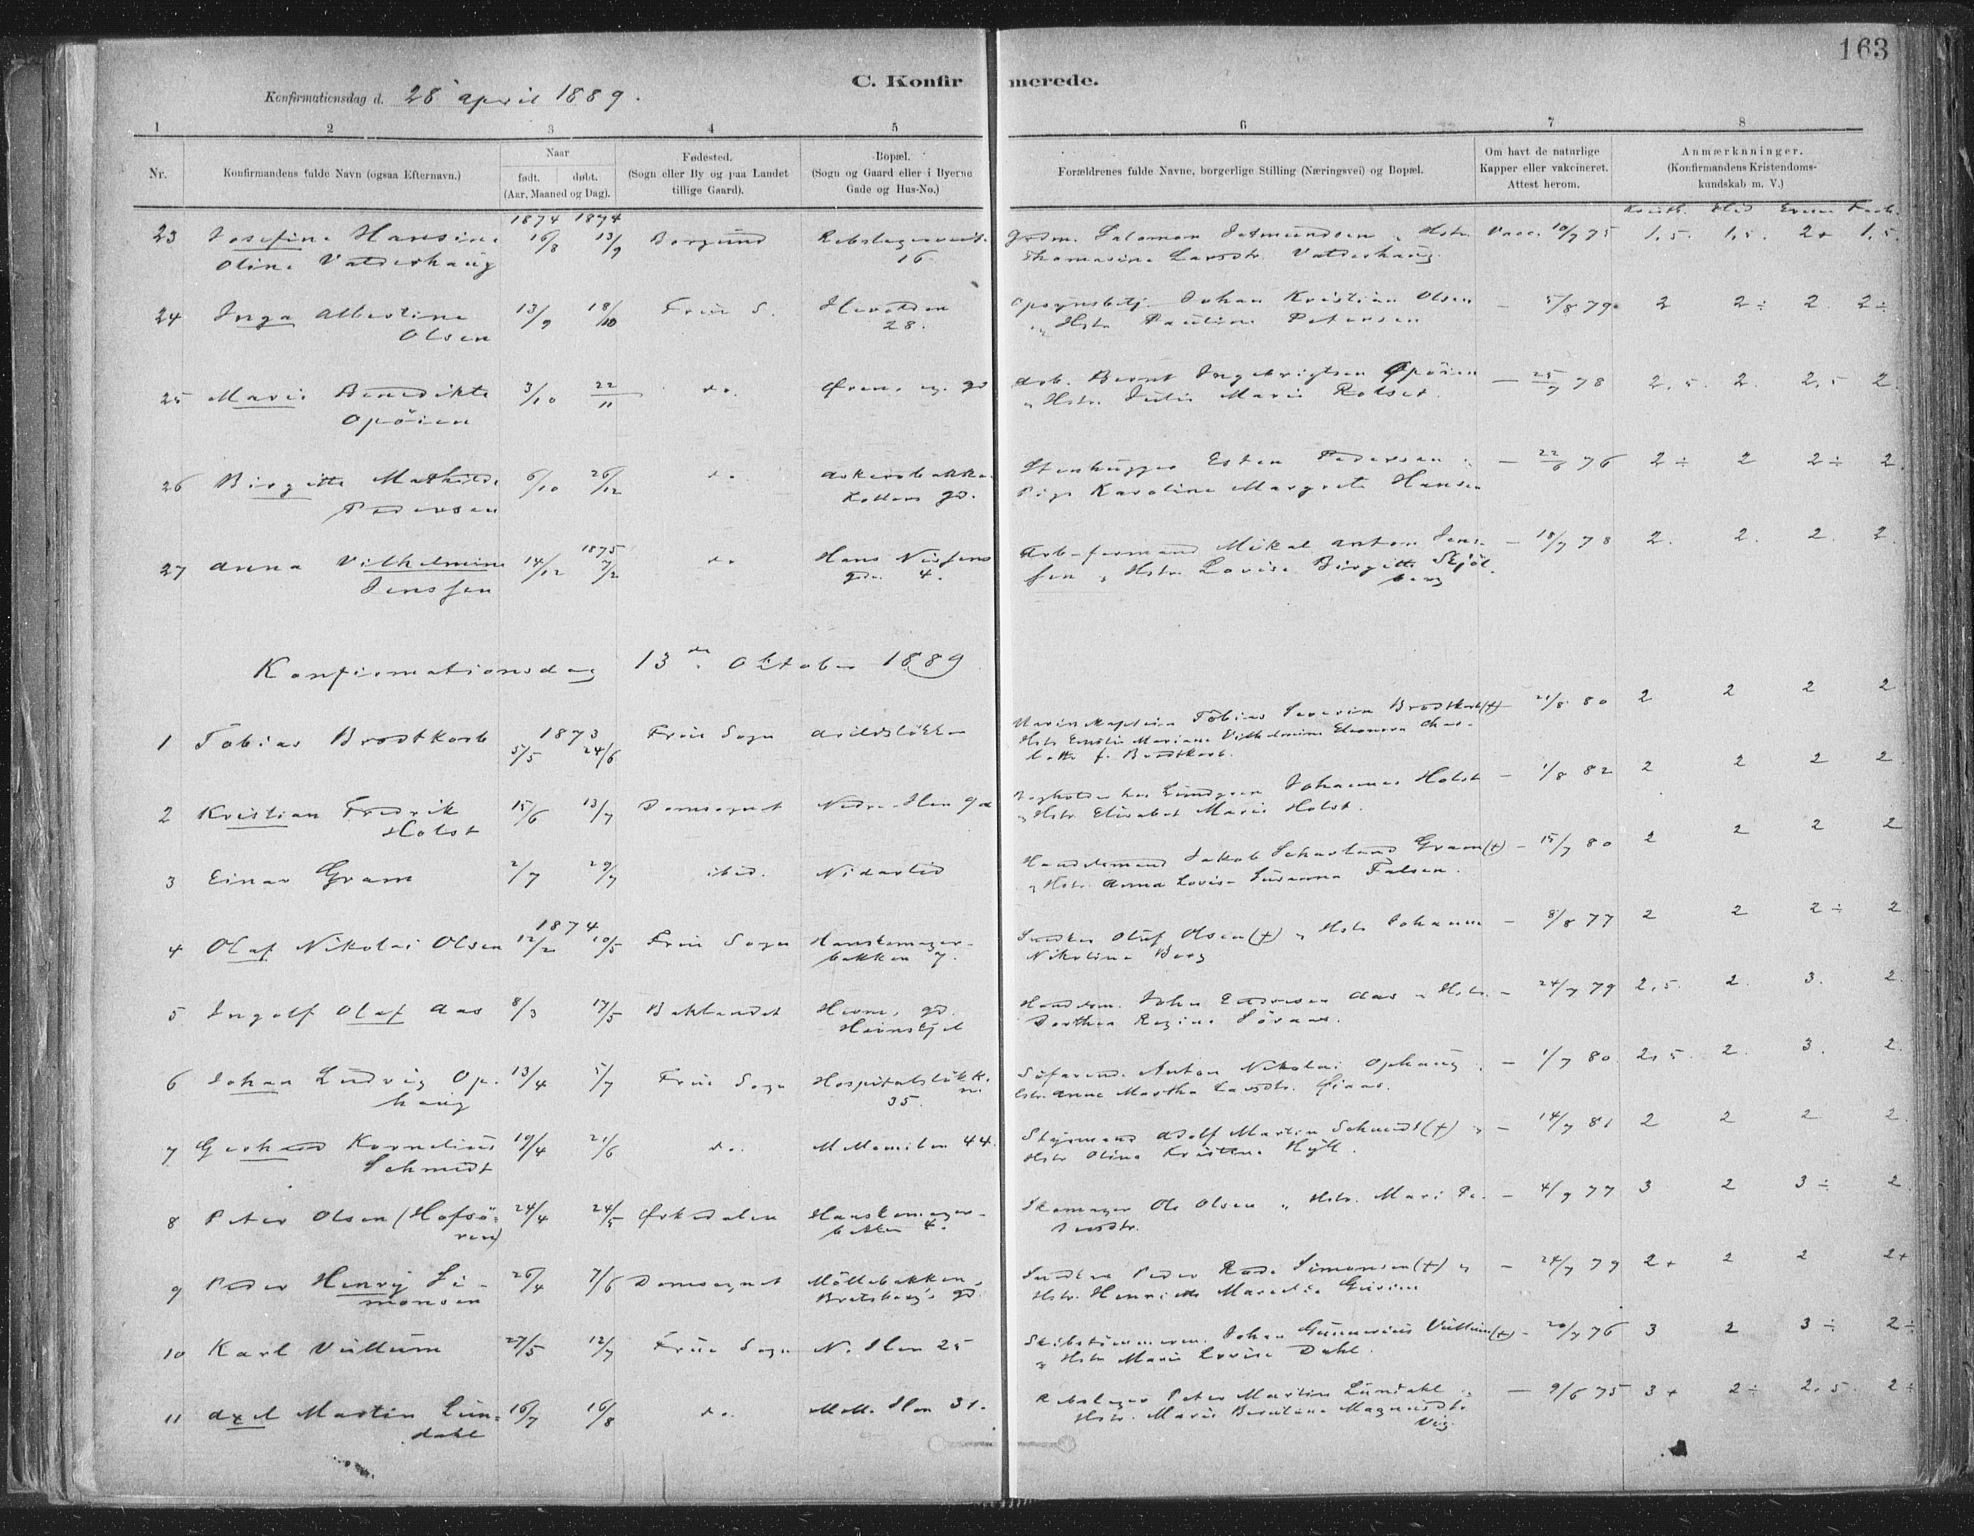 163
C. Konfirmerede.
Konfirmationsdag d. 28 april 1889.
1 2 3 4 5 6 7 8
Nr.
Konfirmandens fulde Navn (ogsaa Efternavn.)
Naar
født. døbt.
(Aar, Maaned og Dag).
Fødested.
(Sogn eller By og paa Landet
tillige Gaard).
Bopæl.
(Sogn og Gaard eller i Byerne
Gade og Hus-No.)
Forældrenes fulde Navne, borgerlige Stilling (Næringsvei) og Bopæl.
Om havt de naturlige
Kapper eller vakcineret.
Attest herom.
Anmærkninger.
(Konfirmandens Kristendoms-
kundskab m. V.)
1874 1874
Kristk. Flid Evner
23 Josefine Hansine 16/8 13/9 Borgund Salomon Hstr. Vacc. 10/7 75 1,5. 1,5. 2+ 1,5.
Oline Valderhaug 16 Thomasine Larsdtr. Valderhaug.
24 Inga Albertine 13/9 18/10 Frue S. Ilevolden Opsynsbetj. Johan Kristian Olsen — 5/8 79 2 2÷ 2 2÷
Olsen 28. Hstr. Pauline Petersen
25 Marie Benedikte 3/10 22/11 do. Øren, gd Arb. Bernt Ingebrigtsen Opöien — 25/7 78 2,5. 2. 2,5 2.
Opöien Hstr. Julie Marie Rokset.
26 Birgitte Mathilde 6/10 26/12 do Stenhugger Esten Pedersen — 22/6 76 2÷ 2 2÷ 2.
Pedersen gd. Pige Karoline Margrete Hansen
1875
27 Anna Vilhelmine 14/12 7/2 do Hans Nissens Arb-formand Mikal Anton Jens- — 18/7 78 2. 2. 2. 2.
Jenssen gd. 4. sen, Hstr. Lovise Birgitte Skjöl-
berg
Konfirmationsdag 13de Oktober 1889
1873
1 Tobias Brodtkorb 5/5 24/6 Frue Sogn Arildsløkken Marinekaptein Tobias Severin Brodtkorb (+) 21/8 80 2 2 2 2
Hstr. Emilie Mariane Vilhelmine Eleonora Char-
lotte f. Brodtkorb.
2 Kristian Fredrik 15/6 13/7 Domsognet Nedre Ilen gd Bogholder hos Lundgreen Johannes Holst — 1/8 82 2 2 2 2
Holst Hstr. Elisabet Marie Holst.
3 Einar Gram 2/7 29/7 ibid. Nidarlid Handelsmand Jakob Gram (+) — 15/7 80 2 2 2 2
Hstr. Anna Lovise Susanna Falsen.
1874
4 Olaf Nikolai Olsen 12/2 10/5 Frue Sogn Hanskemager- Snedker Oluf Olsen (+) Hstr. Johanne — 8/8 77 2 2 2÷ 2
bakken 7. Nikoline Berg
5 Ingolf Olaf Aas 8/3 17/5 Baklandet gd. Handelsm. John Aas Hstr. — 24/7 79 2,5. 2. 3. 2.
Dorthea Regine
6 Johan Ludvig Op- 13/4 5/7 Frue Sogn Hospitalsløkk. Söfarend. Anton Nikolai Ophaug — 1/7 80 2,5 2. 3. 2.
haug 35. Hstr. Anne Martha Larsdtr. Öiaas.
7 Gerhard Kornelius 19/4 21/6 do. M Mamilen 44. Styrmand Adolf Martin Schmidt (+) — 14/7 81 2 2 2 2.
Schmidt Hstr. Oline Kristine
8 Peter Olsen (Hofsö- 24/4 24/5 Ørkedalen Hanskemager- Skomager Ole Olsen Hstr. Mari Pe- — 4/7 77 3 2 3÷ 2.
ren) bakken 4. dersdtr.
9 Peder Henry Si- 26/4 7/6 Domsognet Möllebakken, Snedker Peder Simonsen (+) — 24/7 79 2+ 2 2 2+
monsen Bratsberg's gd. Hstr. Henriette
10 Karl Vullum 27/5 12/7 Frue Sogn N. Ilen 25 Johan Gunnerius Vullum (+) — 20/7 76 3 2 3÷ 2÷
Hstr. Marie Lovise Dahl.
11 Axel Martin Lun- 16/7 16/8 do. Mell. Ilen 31. Rebslager Peter Martin Lundahl — 9/6 75 3+ 2÷ 2,5. 2÷
dahl Hstr. Marie Berntine Magnusdtr.
Vig.